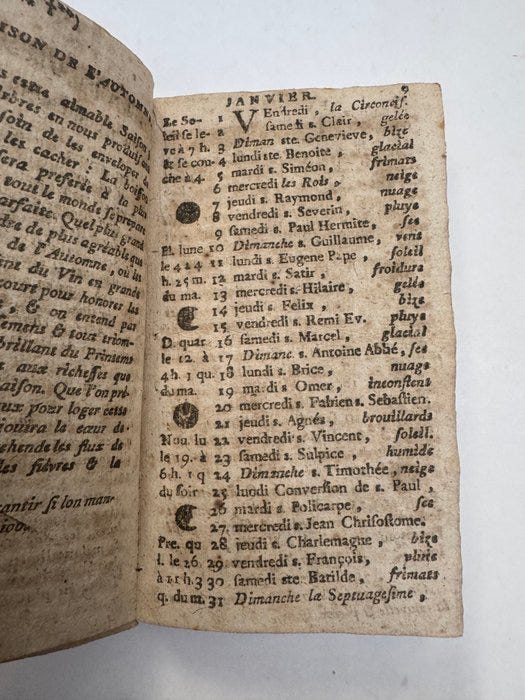 ISON DE L'AUTOMN
estte aimable Saison
rbres en nous produit
soin de les enveloper
les cacher : La boisson
sera preferée à la plus
tout le monde se prepare
rfaite. Quel plus grand
dre de plus agréable que
de l'Automne, où les
ent du Vin en grande
court pour honorer les
, & on entend par
emens & tout triom-
brillant du Printems
aux richesses que
aison. Que l'on pré-
ux pour loger cette
jouira le cœur de
ehende les flux de
les fiévres & le
cantir si lon man-
100.
JANVIER.
Le So- 1 VEndredi, la Circoncis.
leil se le- 2 samedi s. Clair, gelée
ve à 7 h. 3 Diman ste. Genevieve, bize
& se cou- 4 lundi ste. Benoite, glacial
che à 4. 5 mardi s. Siméon, frimats
6 mercredi les Rois, neige
7 jeudi s. Raymond, nuage
8 vendredi s. Severin, pluye
9 samedi s. Paul Hermite, sec
Pl. lune 10 Dimanche s. Guillaume, vent
le 4 à 4 11 lundi s. Eugene Pape, soleil
h. 25 m. 12 mardi s. Satir, froidure
du ma. 13 mercredi s. Hilaire, gelée
14 jeudi s. Felix, bize
15 vendredi s. Remi Ev. pluye
D. quar. 16 samedi s. Marcel, glacial
le 12. à 17 Dimanc. s. Antoine Abbé, sec
4 h. 1 qu. 18 lundi s. Brice, nuage
du ma. 19 mardi s Omer, inconstens
20 mercredi s. Fabien s. Sebastien.
21 jeudi s. Agnés, brouillards
Nou. lu 22 vendredi s. Vincent, soleil.
le 19. à 23 samedi s. Sulpice, humide
6 h. 1 q 24 Dimanche s. Timothée, neige
du soir 25 lundi Conversion de s. Paul,
26 mardi s. Policarpe, sec
27 mercredi s. Jean Chrisostome.
Pre. qu 28 jeudi s. Charlemagne, bize
l. le 26. 29 vendredi s. François, pluie
à 11 h. 3 30 samedi ste. Batilde, frimats
q. du m. 31 Dimanche la Septuagesime,